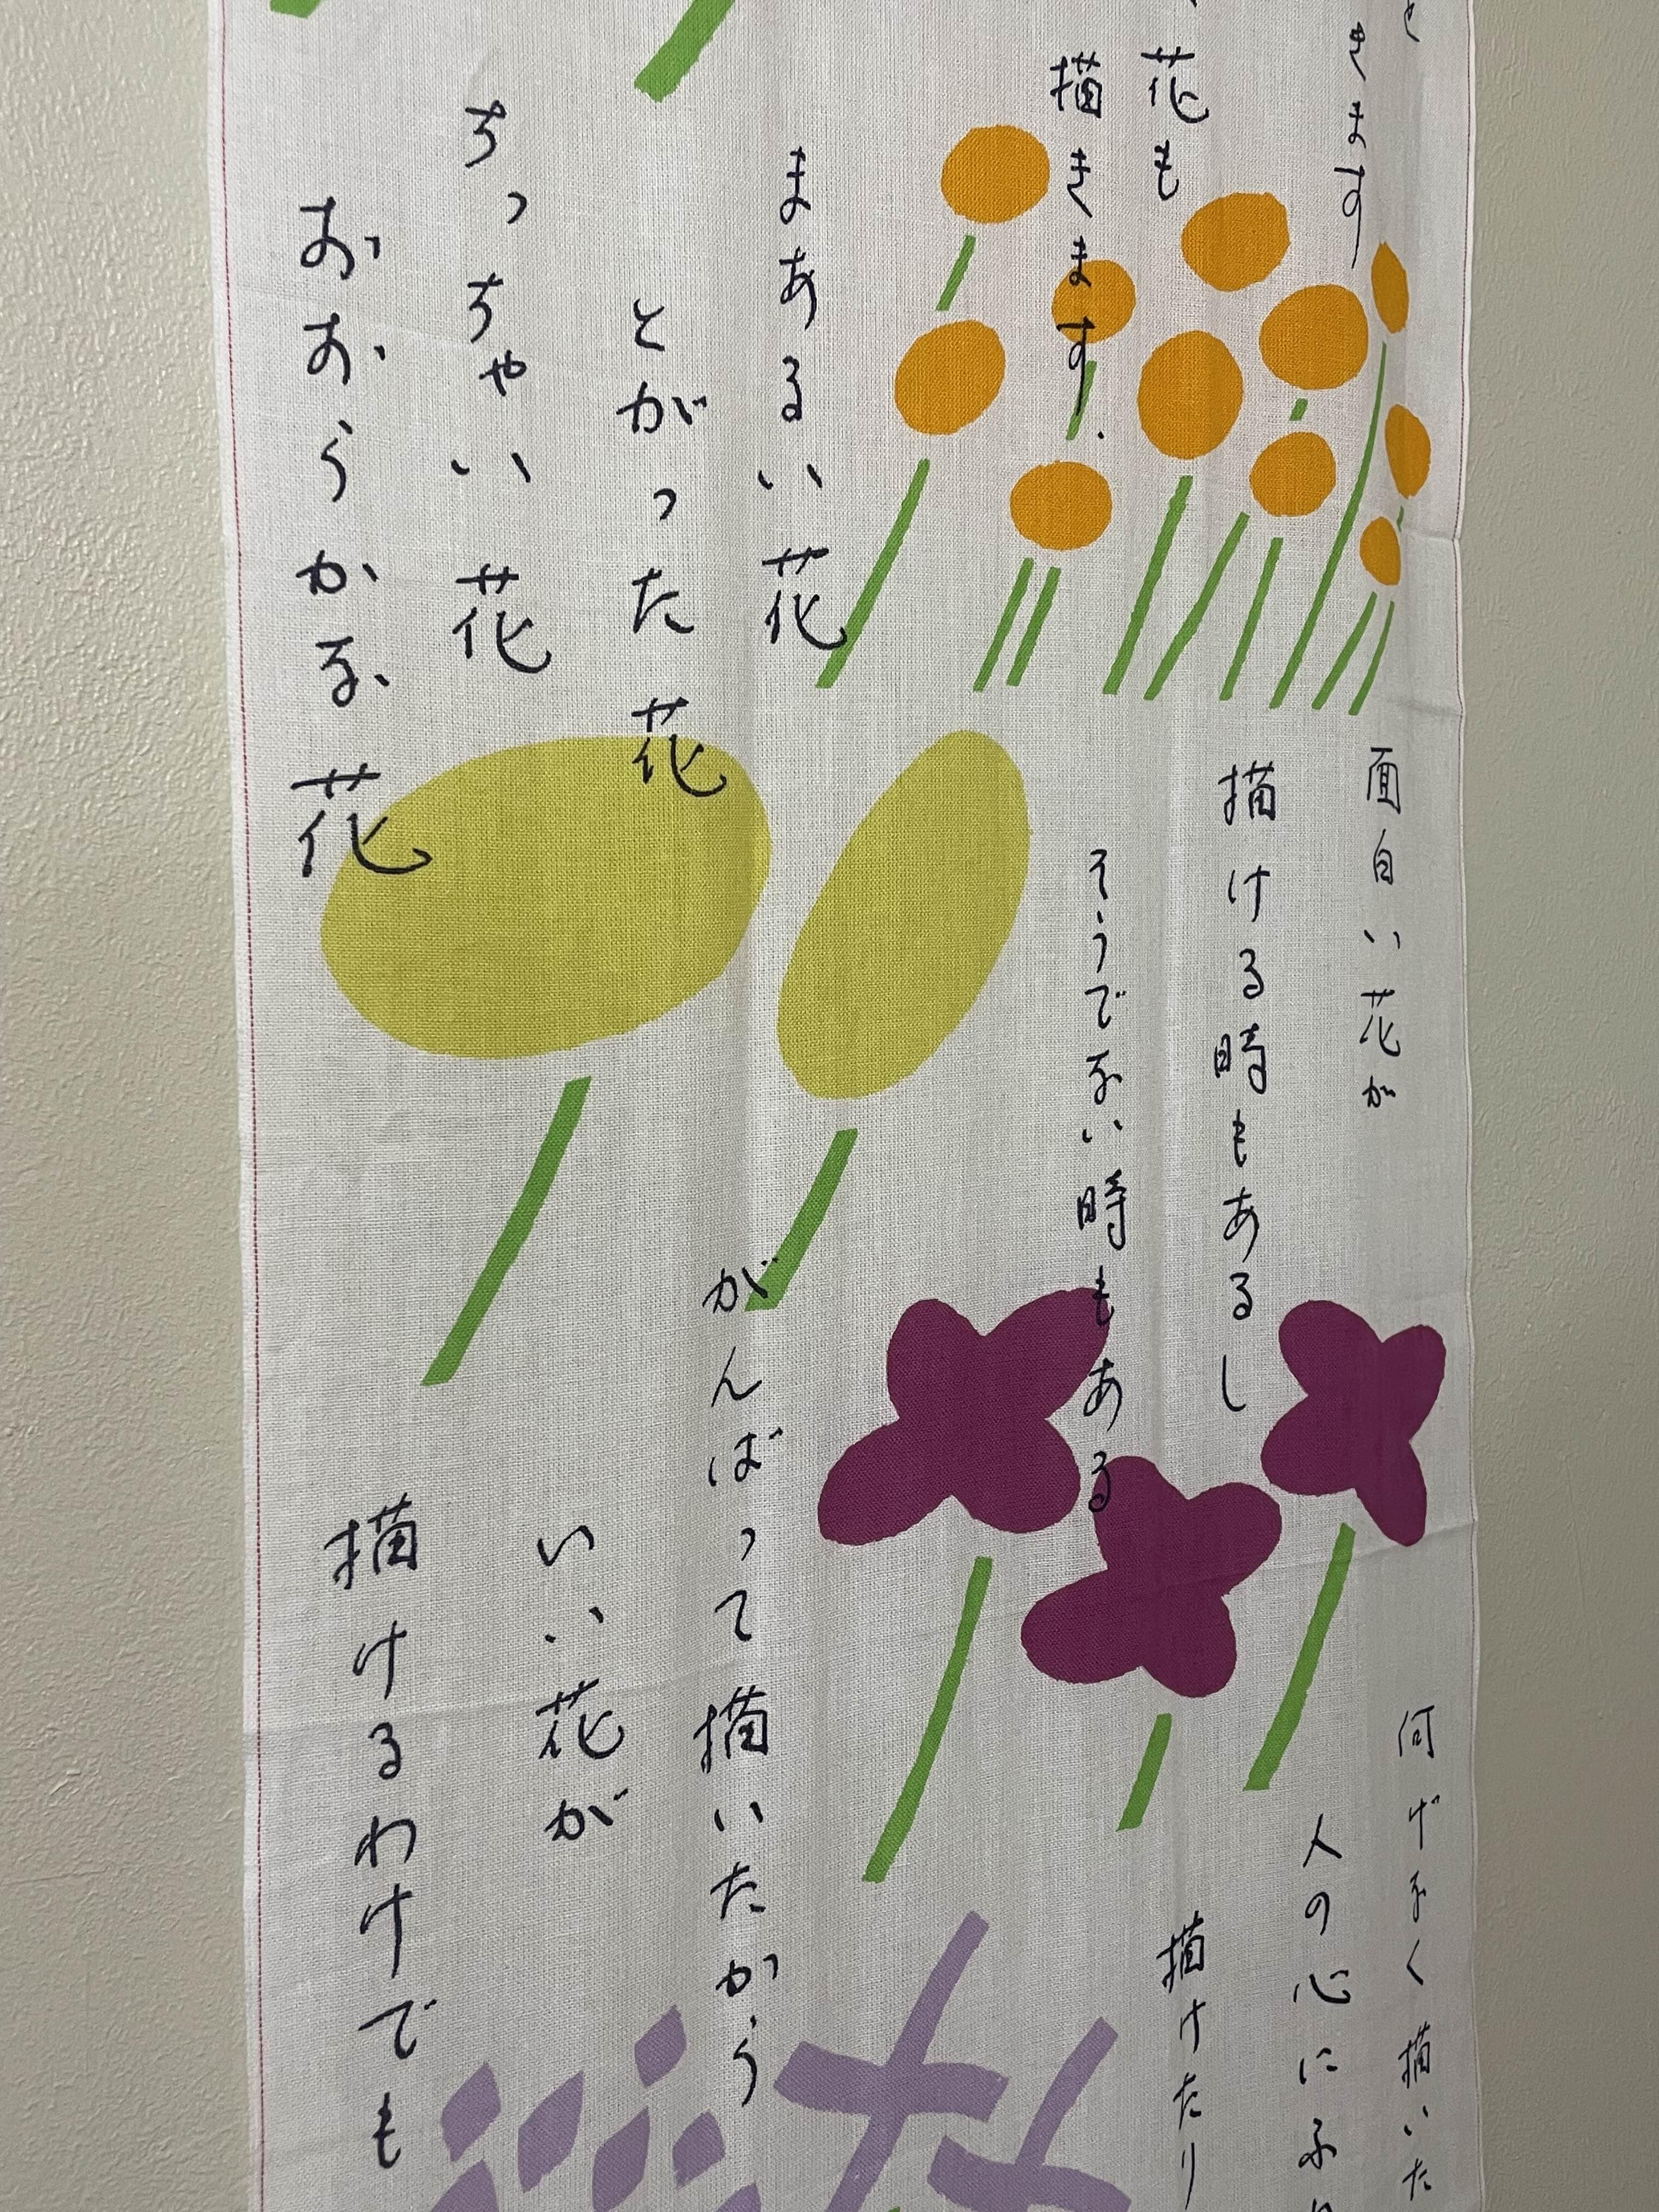 きます
花も
描きます
まあるい花
とがった花
ちっちゃい花
おおらかな花
面白い花が
描ける時もあるし
そうでない時もある
がんばって描いたから
いい花が
描けるわけでも
何げなく描いた
人の心に
描けたり